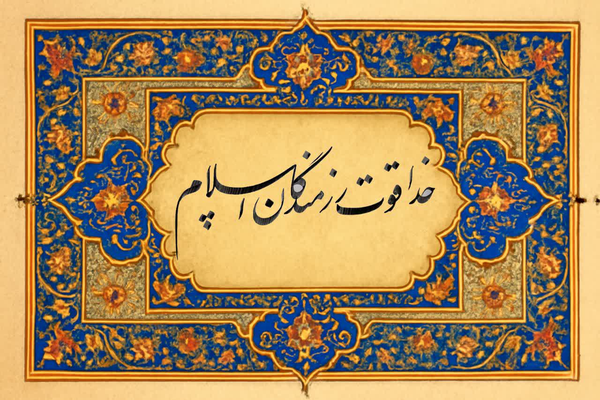 خدا قوت رزمندگان اسلام